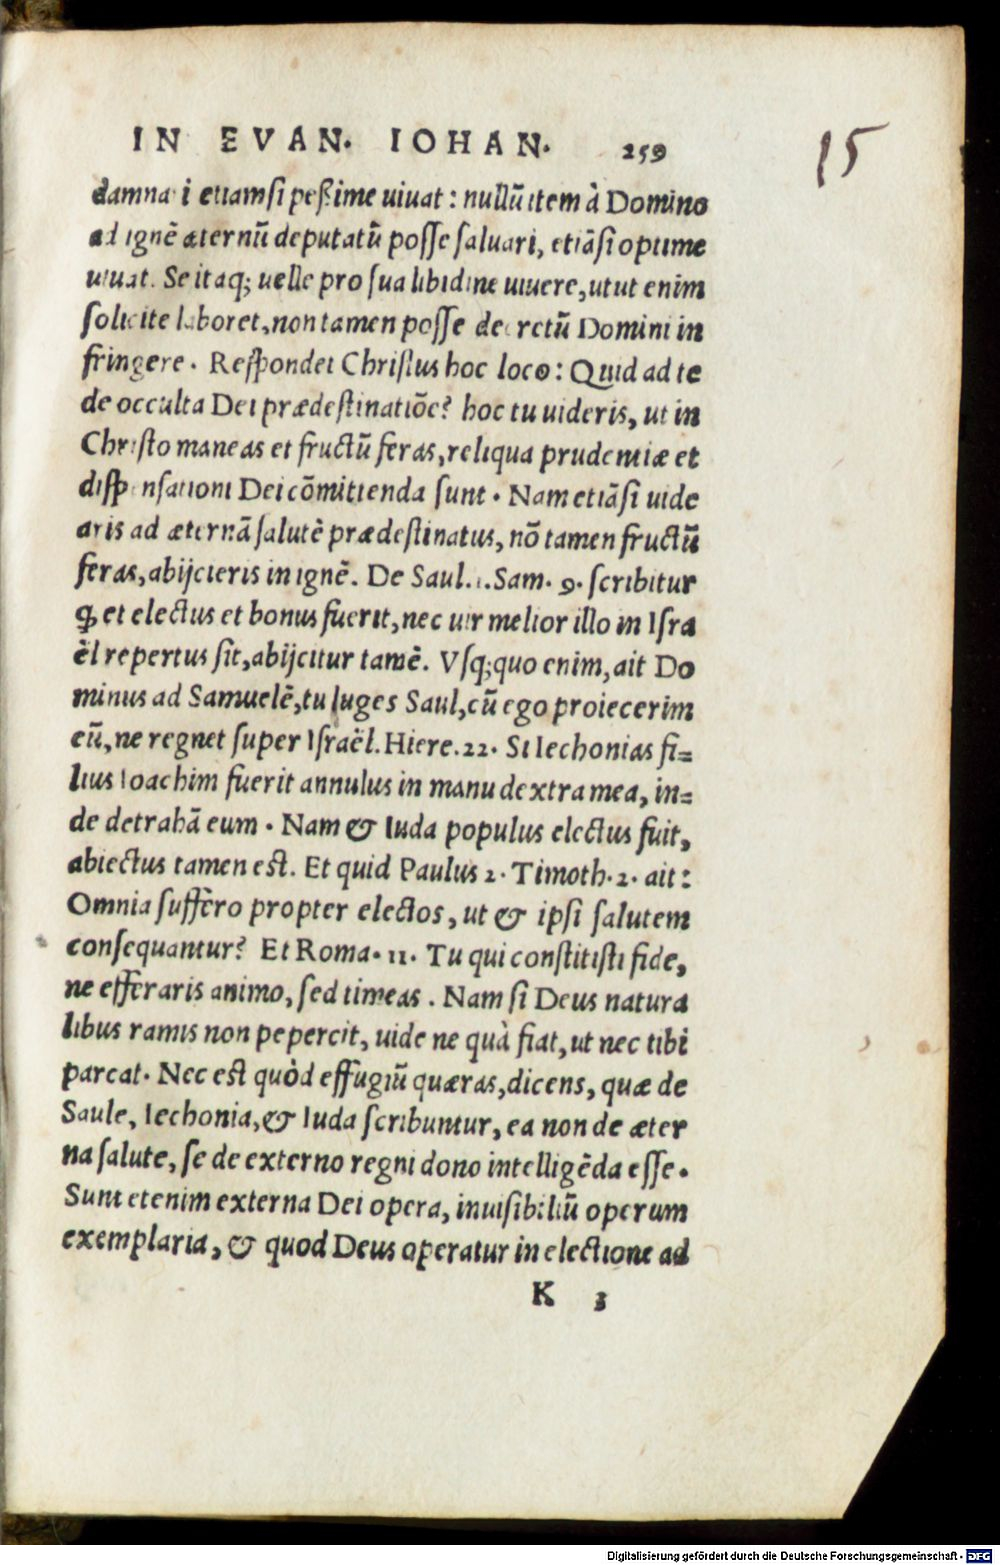 IN EVAN. IOHAN. 259
15
damnari etiamsi peßime uiuat: nullũ item à Domino
ad ignẽ æternũ deputatũ posse saluari, etiãsi optime
uiuat. Se itaq; uelle pro sua libidine uiuere, utut enim
solicite laboret, non tamen posse decretũ Domini in
fringere. Respondet Christus hoc loco: Quid ad te
de occulta Dei prædestinatiõe? hoc tu uideris, ut in
Christo maneas et fructũ feras, reliqua prudentiæ et
dispensationi Dei cõmittenda sunt. Nam etiãsi uide
aris ad æternã salutẽ prædestinatus, nõ tamen fructũ
feras, abijcieris in ignẽ. De Saul.1.Sam. 9. scribitur
ꝙ et electus et bonus fuerit, nec uir melior illo in Isra
ël repertus sit, abijcitur tamẽ. Vsq; quo enim, ait Do
minus ad Samuelẽ, tu luges Saul, cũ ego proiecerim
eũ, ne regnet super Israël. Hiere.22. Si Iechonias fi=
lius Ioachim fuerit annulus in manu dextra mea, in=
de detrahã eum. Nam & Iuda populus electus fuit,
abiectus tamen est. Et quid Paulus 2. Timoth.2. ait:
Omnia suffero propter electos, ut & ipsi salutem
consequantur? Et Roma. 11. Tu qui constitisti fide,
ne efferaris animo, sed timeas. Nam si Deus natura
libus ramis non pepercit, uide ne quà fiat, ut nec tibi
parcat. Nec est quòd effugiũ quæras, dicens, quæ de
Saule, Iechonia, & Iuda scribuntur, ea non de æter
na salute, se de externo regni dono intelligẽda esse.
Sunt etenim externa Dei opera, inuisibiliũ operum
exemplaria, & quod Deus operatur in electione ad
K 3
Digitalisierung gefördert durch die Deutsche Forschungsgemeinschaft - DFG